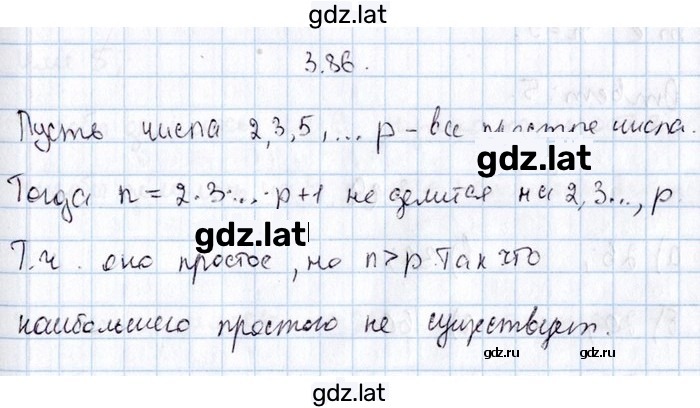 gdz.lat
3.86.
Пусть числа 2,3,5,... p - все простые числа.
gdz.lat
Тогда n = 2·3·...·p+1 не делится на 2,3..., p
gdz.lat
Т.ч. оно простое, но n>p. Так что
наибольшего простого не существует.
gdz.ru
gdz.ru
gdz.lat